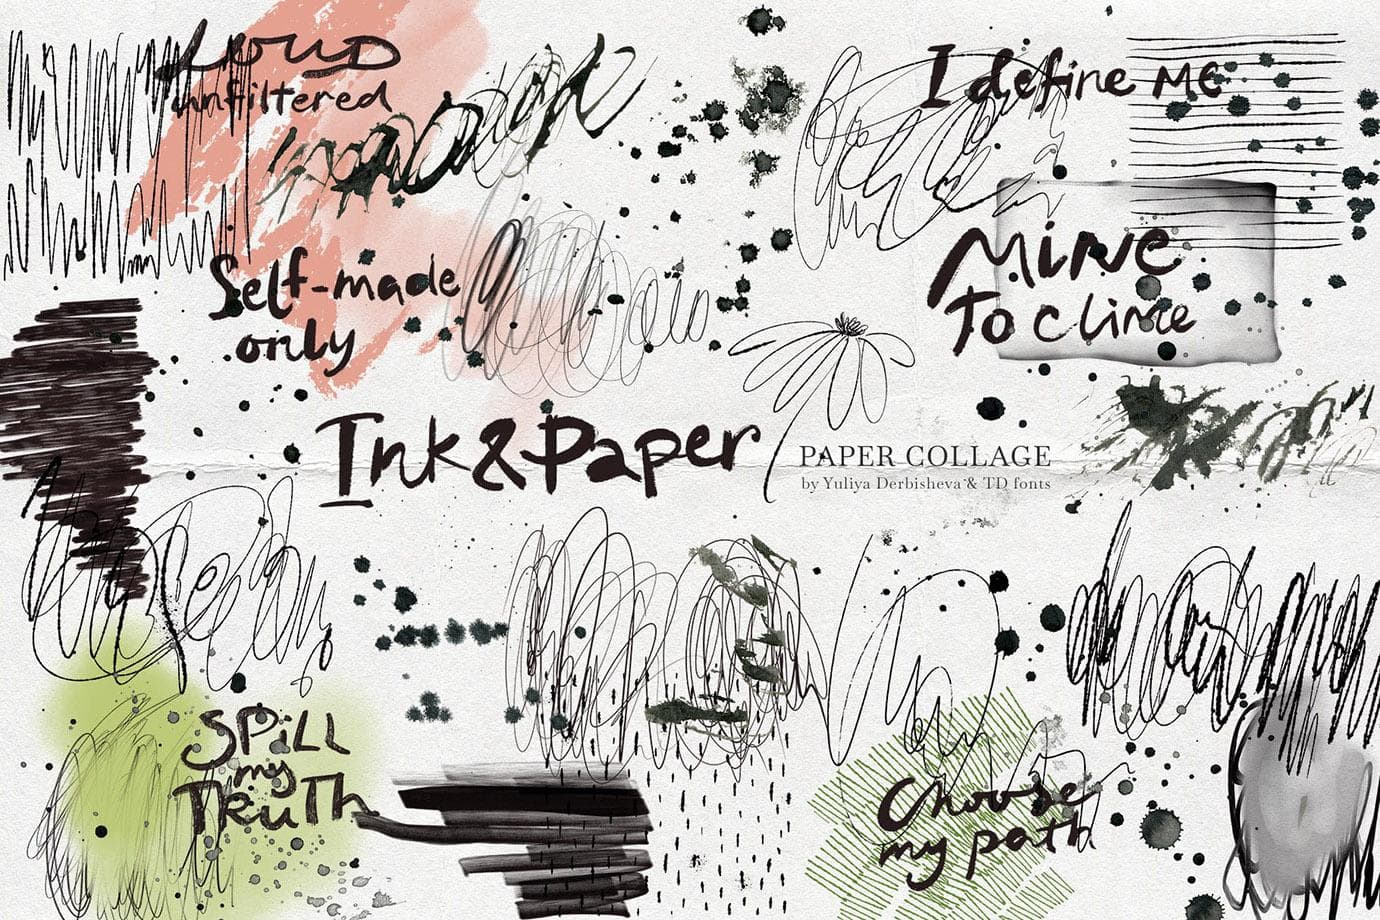 LOUD
unfiltered
I define Me
Self-made
only
MiNe
To clime
Ink&Paper
PAPER COLLAGE
by Yuliya Derbisheva & TD fonts
SPiLL
my
TRuTh
Choose
my path